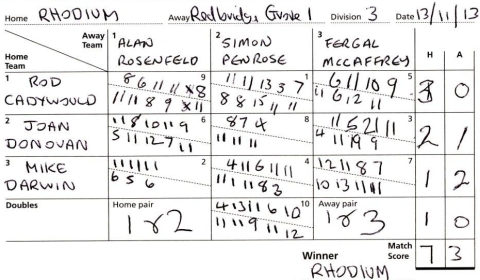 Home RHODIUM Away Redbridge, Grove 1 Division 3 Date 13/11/13
Away Team
Home Team
1 ALAN ROSENFELD
2 SIMON PENROSE
3 FERGAL MCCAFFREY
H A
1 ROD CADYWOULD
8 6 11 11 8 9
11 11 8 9 11
11 11 13 3 7 1
8 8 15 11 11
6 11 10 9 5
11 6 12 11
3 0
2 JOAN DONOVAN
11 8 10 11 9 6
5 11 12 7 11
8 7 4 8
11 11 11
11 5 21 11 3
4 11 19 9
2 1
3 MIKE DARWIN
11 11 11 2
6 5 6
4 11 6 11 11 4
11 1 11 8 3
12 11 8 7 7
10 13 11 11
1 2
Doubles
Home pair
1 & 2
4 13 11 6 10 10
11 11 9 11 12
Away pair
1 & 3
1 0
Match Score 7 3
Winner
RHODIUM